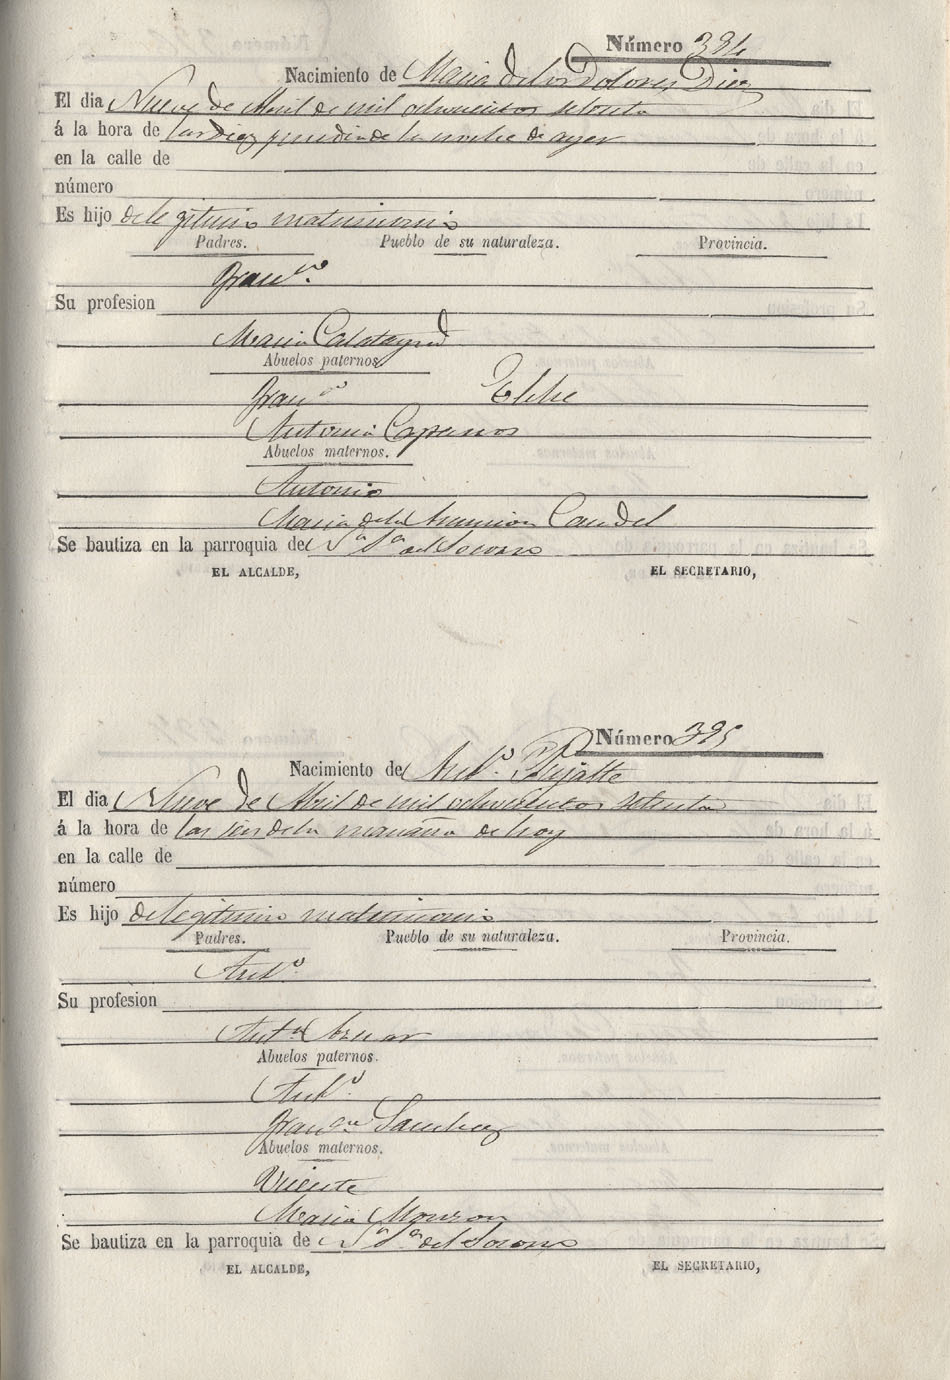 Número 394
Nacimiento de Maria de los Dolores Diez
El dia Nueve de Abril de mil ochocientos setenta
á la hora de las diez y media de la noche de ayer
en la calle de
número
Es hijo de legitimo matrimonio
Padres. Pueblo de su naturaleza. Provincia.
Franco.
Su profesion
Maria Calatayud
Abuelos paternos
Franco Elche
Antonia Esparros
Abuelos maternos.
Antonio
Maria de la Asuncion Candel
Se bautiza en la parroquia de Nª Sª del Socorro
EL ALCALDE, EL SECRETARIO,
Número 395
Nacimiento de Anto. Pujalte
El dia Nueve de Abril de mil ochocientos setenta
á la hora de las seis de la mañana de hoy
en la calle de
número
Es hijo de legitimo matrimonio
Padres. Pueblo de su naturaleza. Provincia.
Anto.
Su profesion
Anta Aznar
Abuelos paternos.
Anto.
Franca Sanchez
Abuelos maternos.
Vicente
Maria Monzon
Se bautiza en la parroquia de Nª Sª del Socorro
EL ALCALDE, EL SECRETARIO,